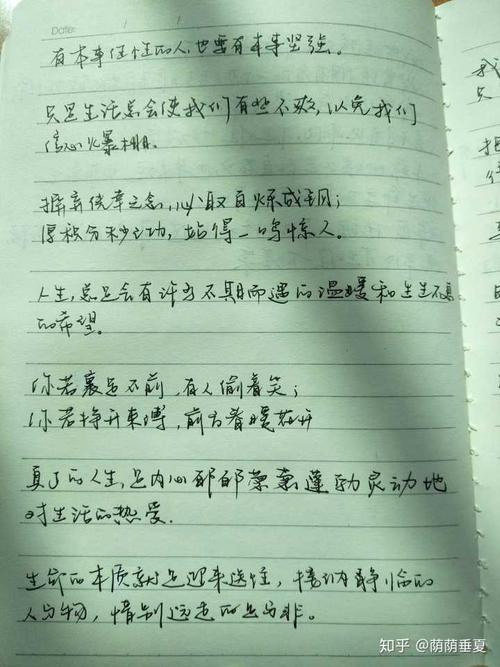 Date: / /
有本事任性的人，也要有本事坚强。
只是生活总会使我们有些不欢，以免我们
信心火暴棚。
摒弃侥幸之念，必取百炼成钢；
厚积分秒之功，始得一鸣惊人。
人生，总是会有许多不期而遇的温暖和生生不息
的希望。
你若裹足不前，有人偷着笑；
你若挣开束缚，前方春暖花开
真正的人生，是内心郁郁葱葱蓬勃灵动地
对生活的热爱.
生命的本质就是迎来送往，接纳静临的
人与物，惜别远走的是与非。
知乎 @荫荫垂夏